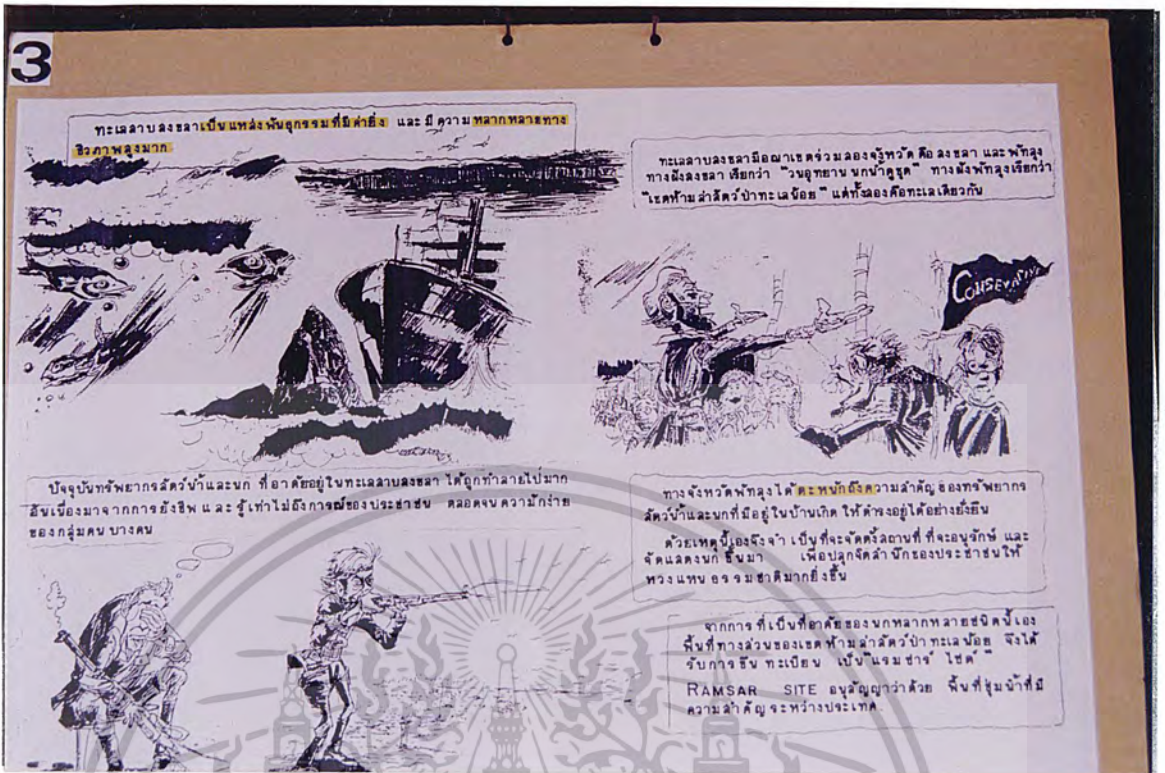 3
ทะเลสาบสงขลาเป็นแหล่งพันธุกรรมที่มีค่ายิ่ง และมีความหลากหลายทาง
ชีวภาพสูงมาก
ทะเลสาบสงขลามีอณาเขตร่วมสองจังหวัด คือ สงขลา และ พัทลุง
ทางฝั่งสงขลา เรียกว่า "วนอุทยานนกน้ำคูขุด" ทางฝั่งพัทลุงเรียกว่า
"เขตห้ามล่าสัตว์ป่าทะเลน้อย" แต่ทั้งสองคือทะเลเดียวกัน
CONSERVATIVE
ปัจจุบันทรัพยากรสัตว์น้ำและนก ที่อาศัยอยู่ในทะเลสาบสงขลา ได้ถูกทำลายไปมาก
อันเนื่องมาจากการยังชีพ และ รู้เท่าไม่ถึงการณ์ของประชาชน ตลอดจนความมักง่าย
ของกลุ่มคน บางคน
ทางจังหวัดพัทลุงได้ตะหนักถึงความสำคัญของทรัพยากร
สัตว์น้ำและนกที่มีอยู่ในบ้านเกิด ให้ดำรงอยู่ได้อย่างยั่งยืน
ด้วยเหตุนี้เองจึงจำเป็นที่จะจัดตั้งสถานที่ ที่จะอนุรักษ์ และ
จัดแสดงนก ขึ้นมา เพื่อปลุกจิตสำนึกของประชาชนให้
หวงแหน ธรรมชาติมากยิ่งขึ้น
จากการ ที่เป็นที่อาศัยของนกหลากหลายชนิดนี้เอง
พื้นที่ทางส่วนของเขตห้ามล่าสัตว์ป่า ทะเลน้อย จึงได้
รับการขึ้น ทะเบียน เป็น "แรมซาร์ ไซต์"
RAMSAR SITE อนุสัญญาว่าด้วย พื้นที่ชุ่มน้ำที่มี
ความสำคัญระหว่างประเทศ